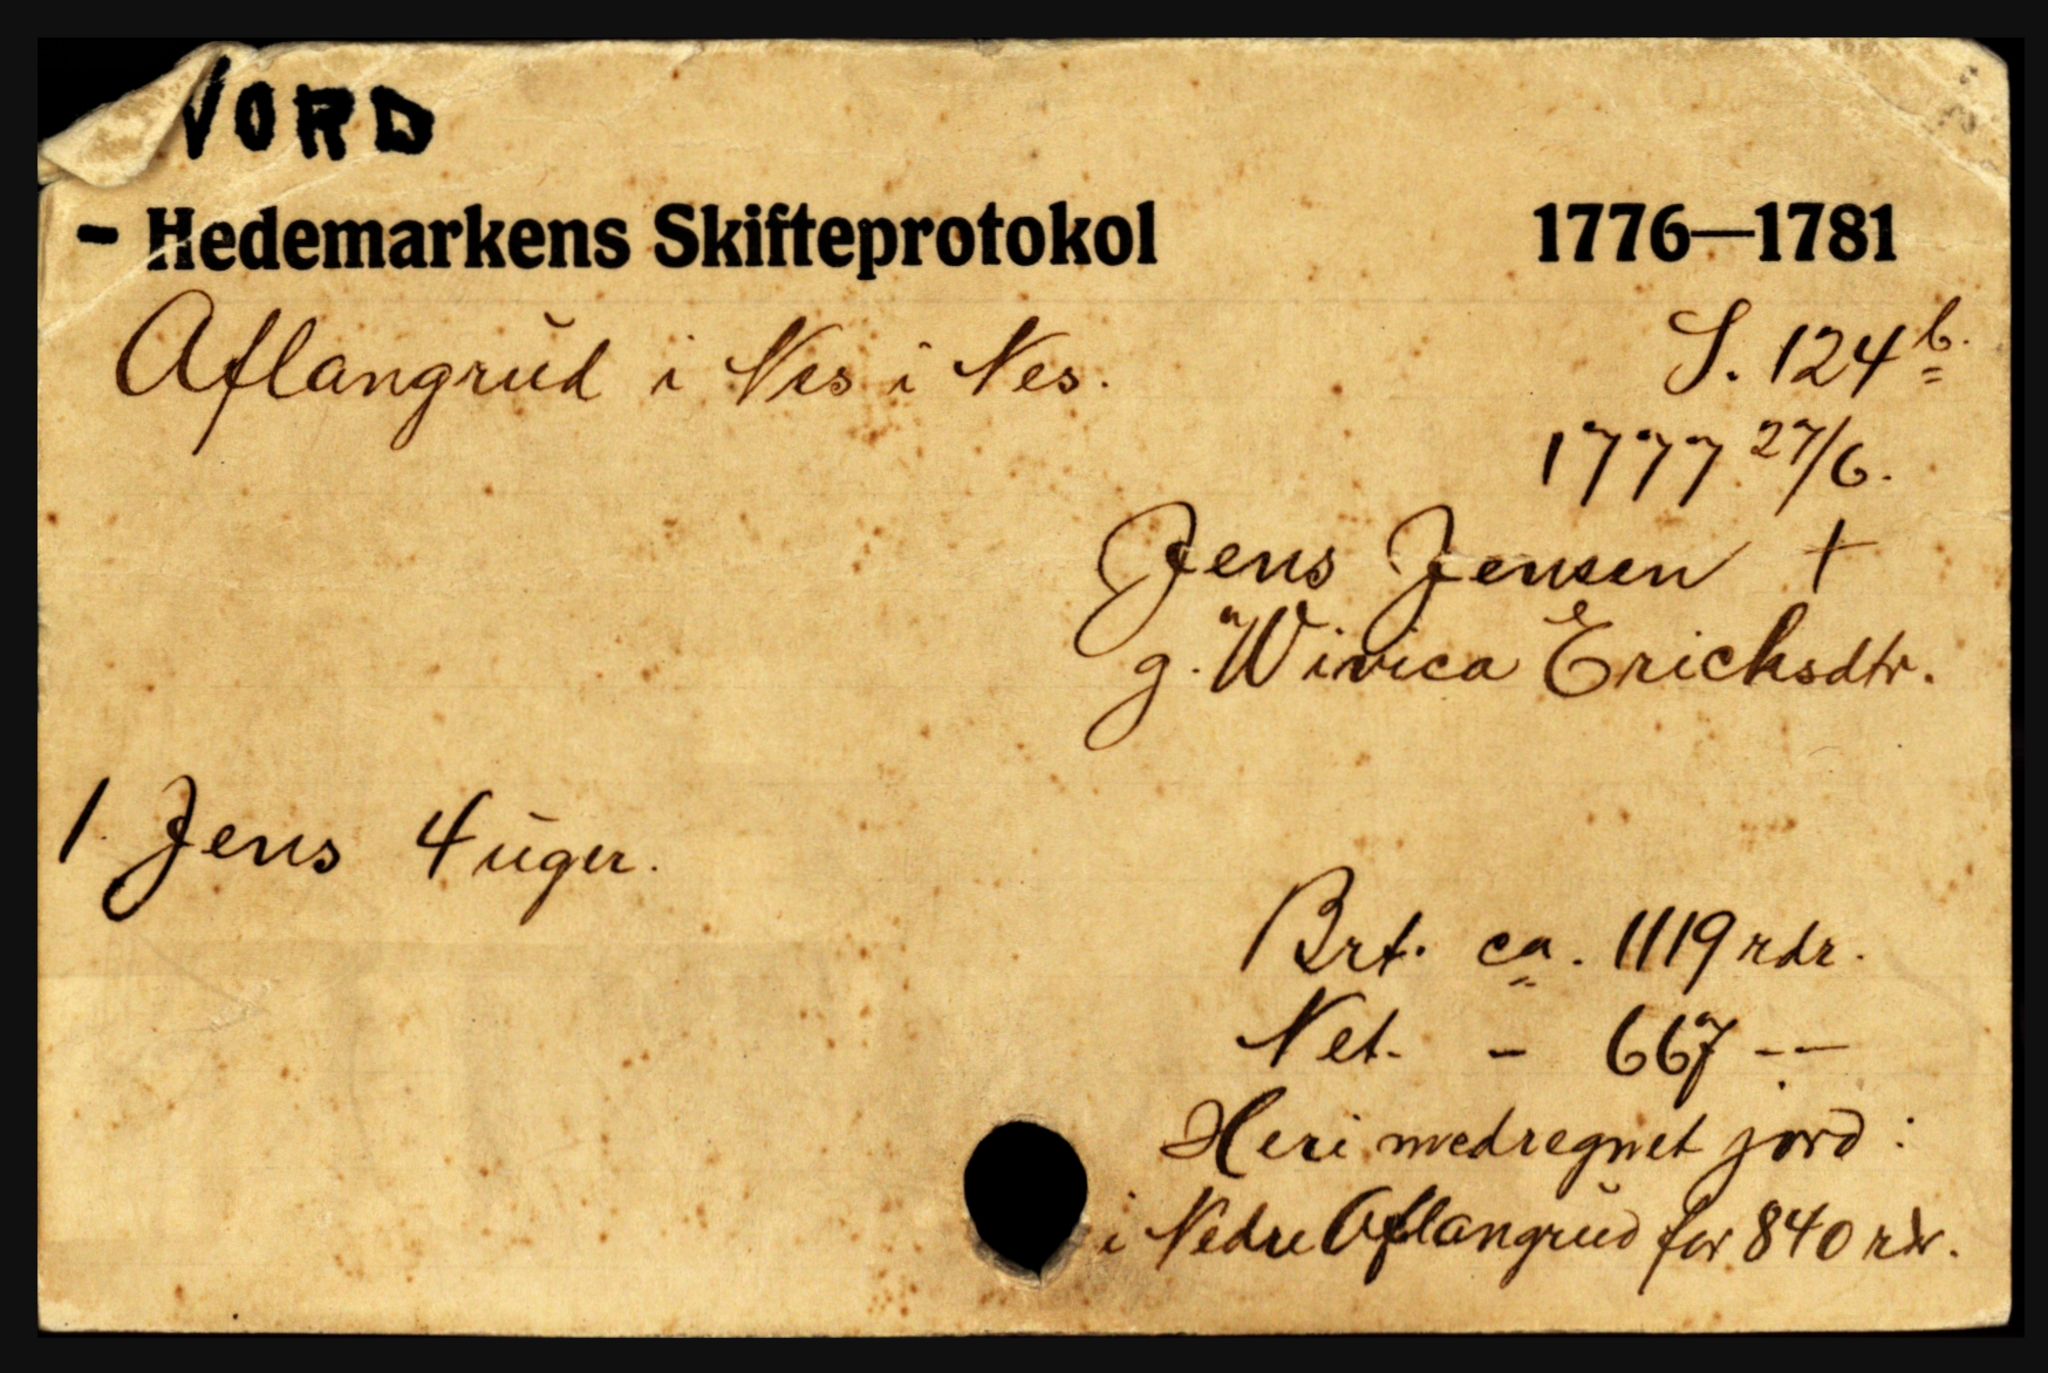 NORD
- Hedemarkens Skifteprotokol 1776—1781
Aflangrud i Nes i Nes. S. 124 b.
1777 27/6.
Jens Jensen †
g. Wivica Erichsdtr.
1. Jens 4 uger.
Brt. ca. 1119 rdr.
Net. - 667 --
Heri medregnet jord:
i Nedre Aflangrud for 840 rdr.